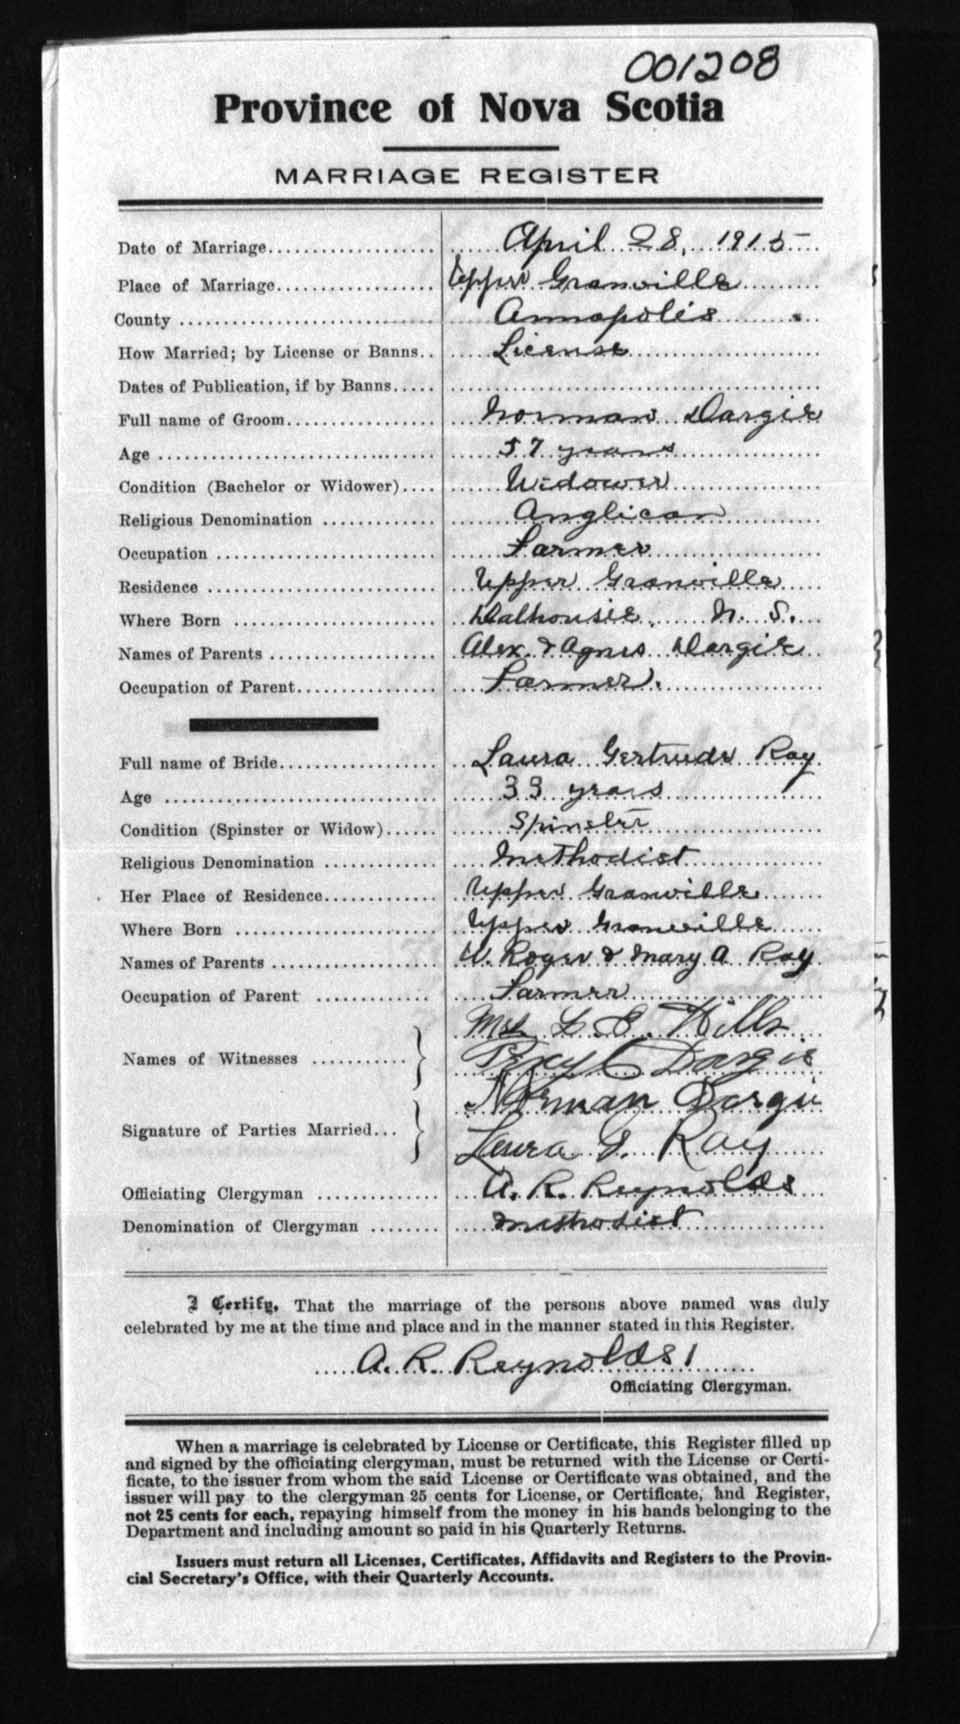 001208
Province of Nova Scotia
MARRIAGE REGISTER
Date of Marriage.................... April 28, 1915
Place of Marriage.................. Upper Granville
County ............................... Annapolis
How Married; by License or Banns.. License
Dates of Publication, if by Banns.....
Full name of Groom................. Norman Dargie
Age .................................. 57 years
Condition (Bachelor or Widower).... Widower
Religious Denomination ............ Anglican
Occupation .......................... Farmer
Residence ........................... Upper Granville
Where Born ........................ Dalhousie, N. S.
Names of Parents ................... Alex. & Agnes Dargie
Occupation of Parent................ Farmer.
Full name of Bride.................. Laura Gertrude Ray
Age ................................. 33 years
Condition (Spinster or Widow)...... Spinster
Religious Denomination ............ Methodist
Her Place of Residence............. Upper Granville
Where Born ........................ Upper Granville
Names of Parents ................... W. Roger & Mary A Ray
Occupation of Parent .............. Farmer
Mrs L. E. Wills
Names of Witnesses ........... Percy C Dargie
Norman Dargie
Signature of Parties Married... Laura G. Ray
Officiating Clergyman ............. A. R. Reynolds
Denomination of Clergyman ........ Methodist
I Certify, That the marriage of the persons above named was duly
celebrated by me at the time and place and in the manner stated in this Register.
A. R. Reynolds
Officiating Clergyman.
When a marriage is celebrated by License or Certificate, this Register filled up
and signed by the officiating clergyman, must be returned with the License or Certi-
ficate, to the issuer from whom the said License or Certificate was obtained, and the
issuer will pay to the clergyman 25 cents for License, or Certificate, and Register,
not 25 cents for each, repaying himself from the money in his hands belonging to the
Department and including amount so paid in his Quarterly Returns.
Issuers must return all Licenses, Certificates, Affidavits and Registers to the Provin-
cial Secretary's Office, with their Quarterly Accounts.